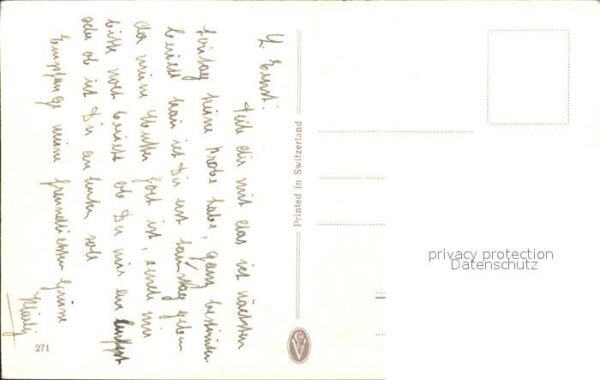 L. Ernst!
Teile dir mit das ich nächsten
Freitag keine Probe habe, ganz bestimmt
bericht kan ich Dir erst Samstag geben
da meine Mutter fort ist, schreib mir
bitte noch bericht ob Du mir an
oder ob ich Dir anläuten soll
Empfange meine freundlichsten Grüsse
Printed in Switzerland
271
privacy protection
Datenschutz